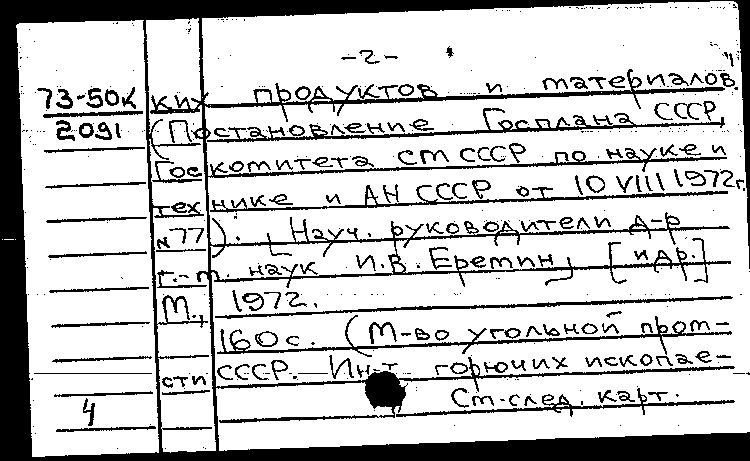 -2-
73-50к ких продуктов и материалов
2091 (Постановление Госплана СССР,
Госкомитета СМ СССР по науке и
технике и АН СССР от 10 VIII 1972г.
№77). [Науч. руководители д-р
г.-м. наук И.В. Еремин] [и др.]
М., 1972.
160с. (М-во угольной пром-
сти СССР. Ин-т горючих ископае-
4 См. след. карт.